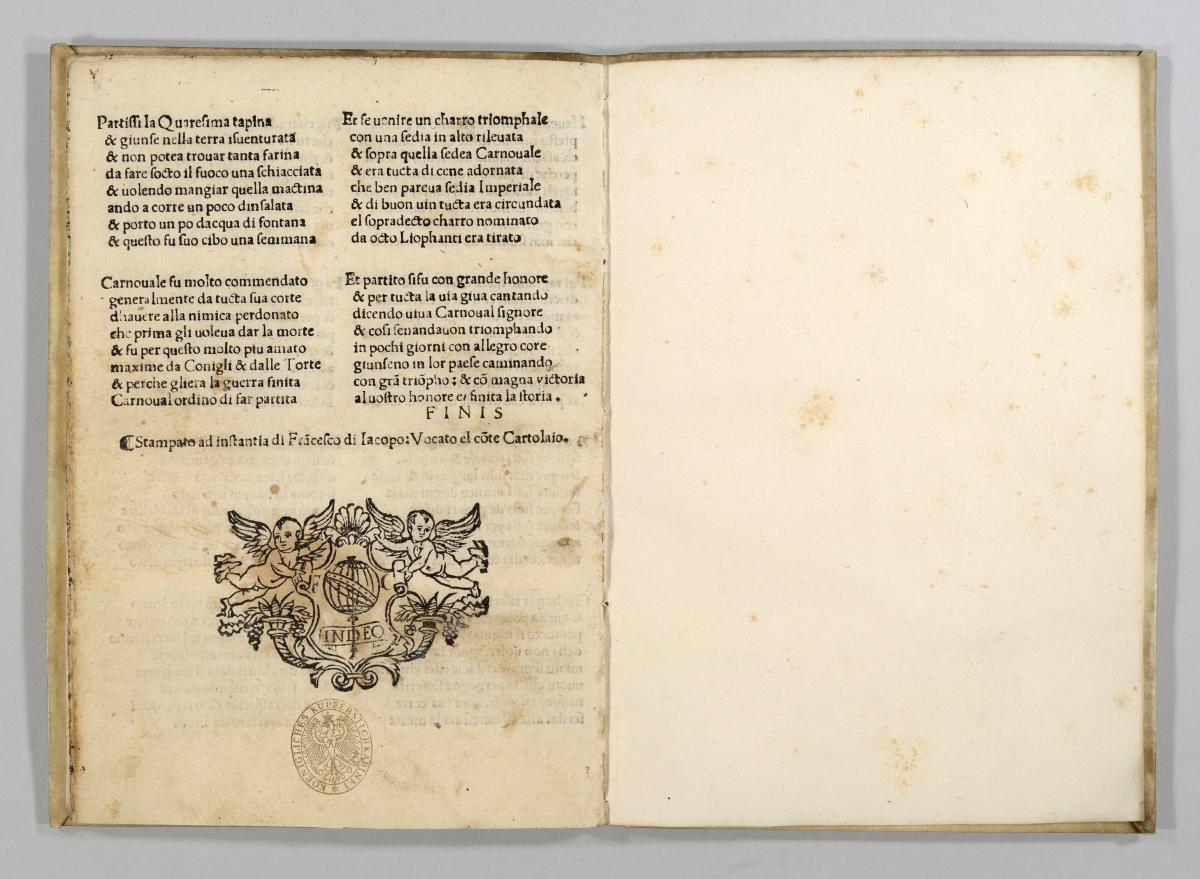 Partissi la Quaresima tapina
& giunse nella terra isuenturata
& non potea trouar tanta farina
da fare socto il fuoco una schiacciata
& uolendo mangiar quella mactina
ando a corte un poco dinsalata
& porto un po dacqua di fontana
& questo fu suo cibo una semmana
Carnouale fu molto commendato
generalmente da tucta sua corte
dhauere alla nimica perdonato
che prima gli uoleua dar la morte
& fu per questo molto piu amato
maxime da Conigli & dalle Torte
& perche gliera la guerra finita
Carnoual ordino di far partita
Et fe uenire un charro triomphale
con una sedia in alto rileuata
& sopra quella sedea Carnouale
& era tucta di cene adornata
che ben pareua sedia Imperiale
& di buon uin tucta era circundata
el sopradecto charro nominato
da octo Liophanti era tirato
Et partito sifu con grande honore
& per tucta la uia giua cantando
dicendo uiua Carnoual signore
& cosi senandauon triomphando
in pochi giorni con allegro core
giunseno in lor paese caminando
con grã triõpho: & cõ magna victoria
al uostro honore e finita la storia.
FINIS
¶Stampato ad instantia di Frãcesco di Iacopo: Vocato el cõte Cartolaio.
F C
INDEO
KOENIGLICHES KUPFERSTICHKABINET